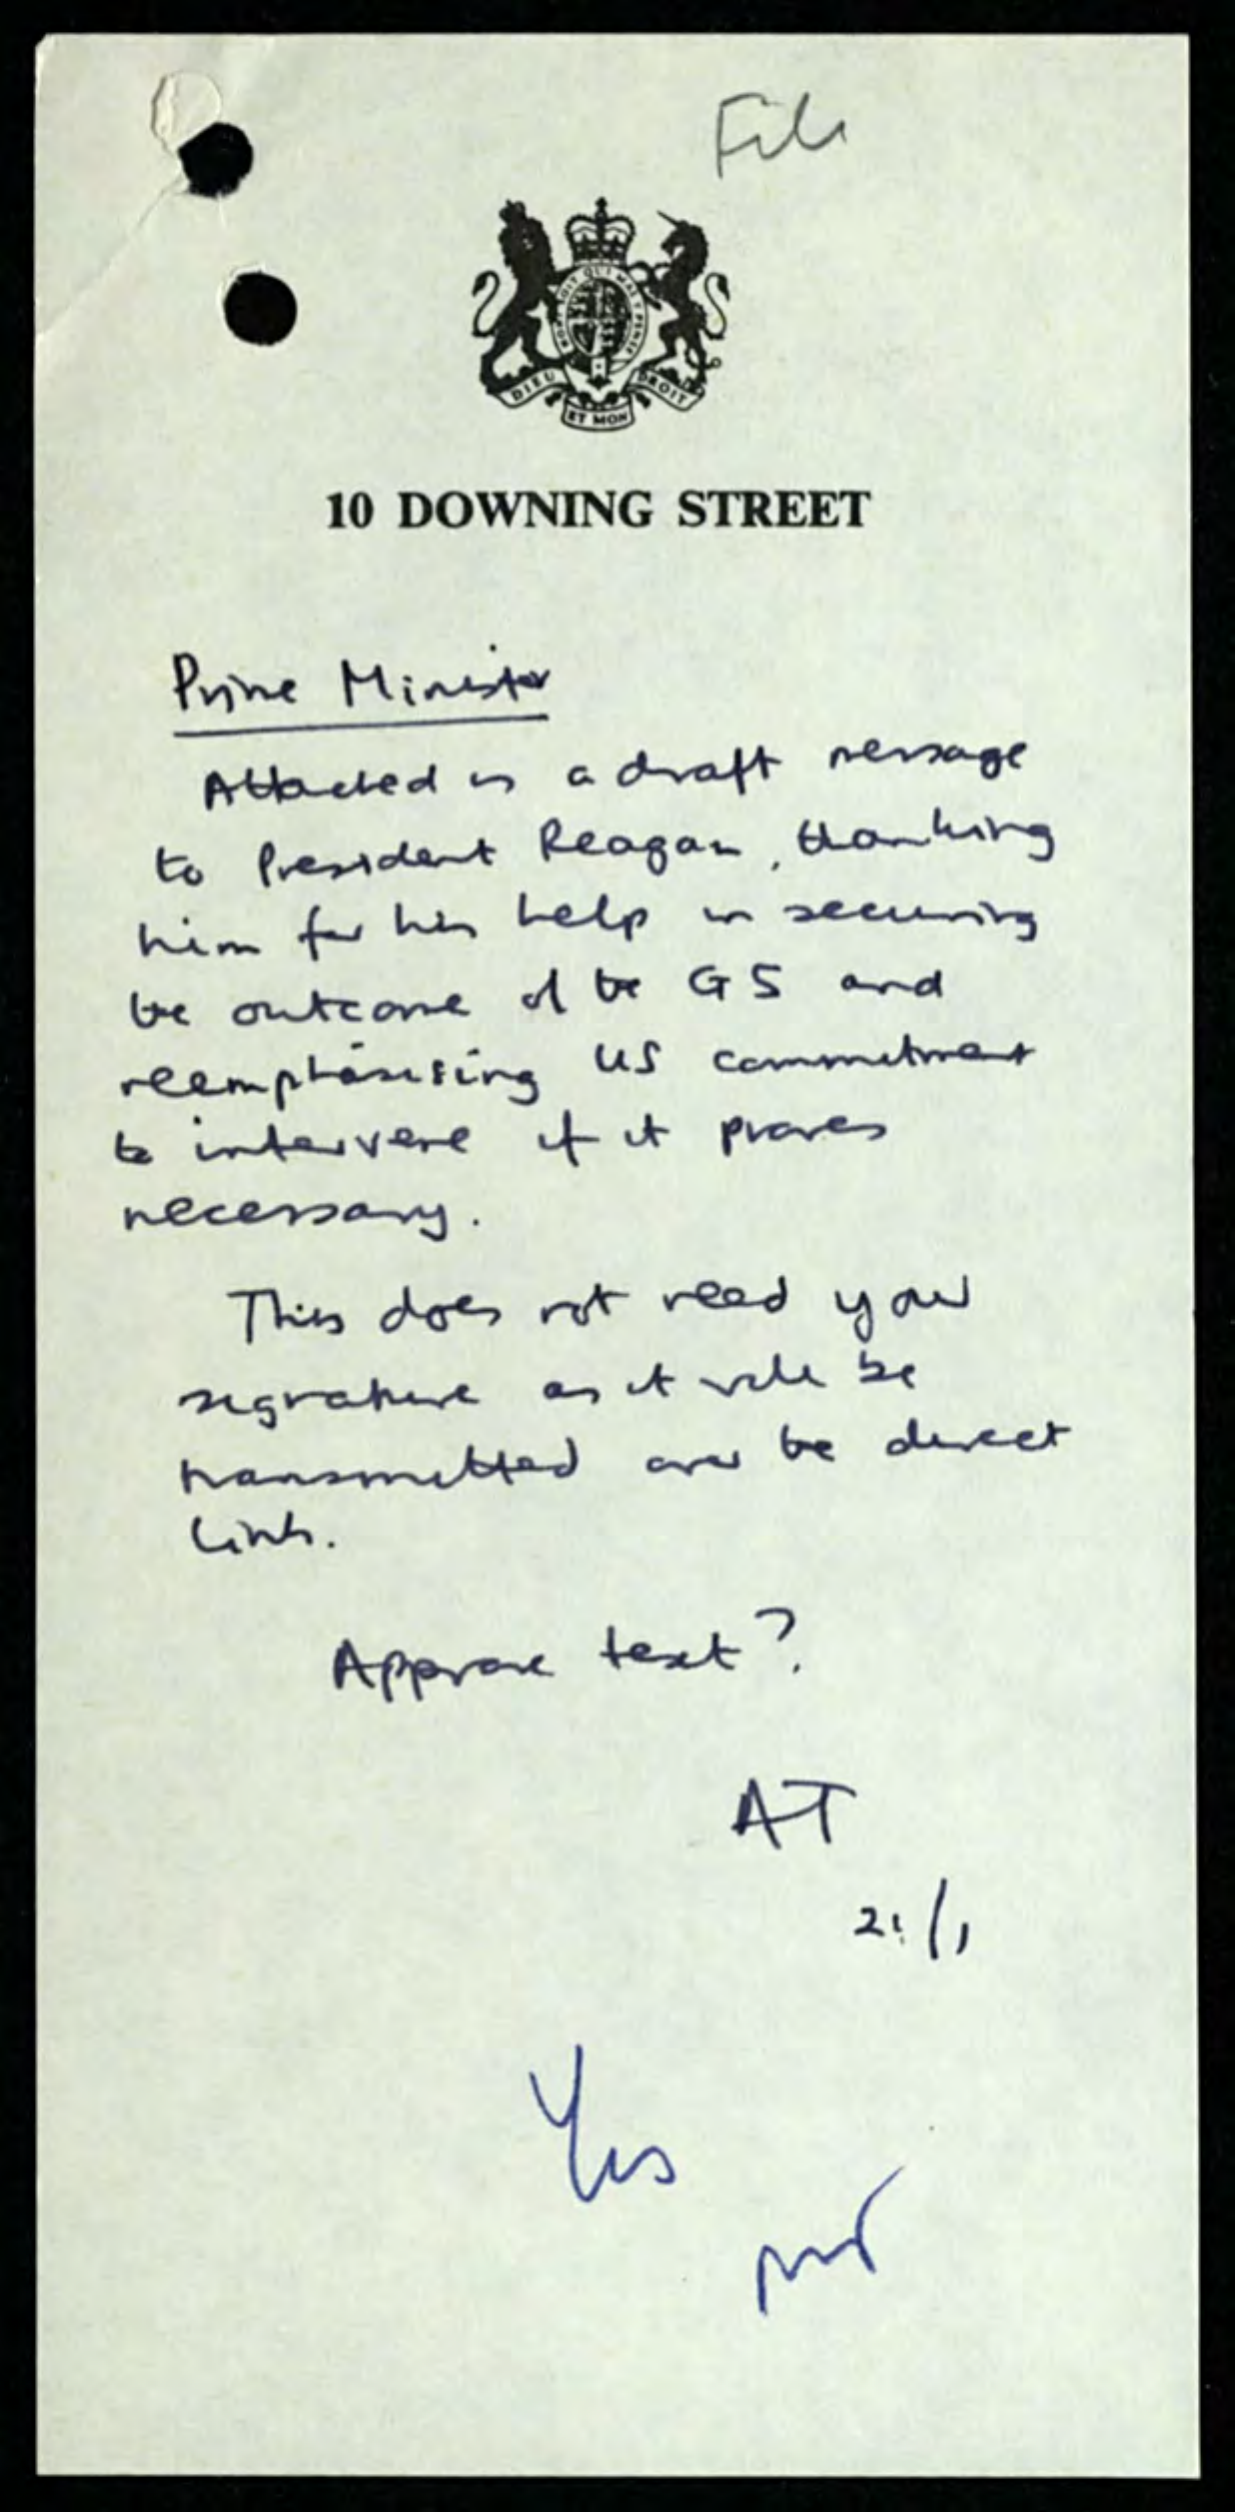 File
HONI SOIT QUI MAL Y PENSE
DIEU ET MON DROIT
10 DOWNING STREET
Prime Minister
Attached is a draft message
to President Reagan, thanking
him for his help in securing
the outcome of the G5 and
reemphasising US commitment
to intervene if it proves
necessary.
This does not need your
signature as it will be
transmitted over the direct
link.
Approve text?
AT
21/1
Yes
MT